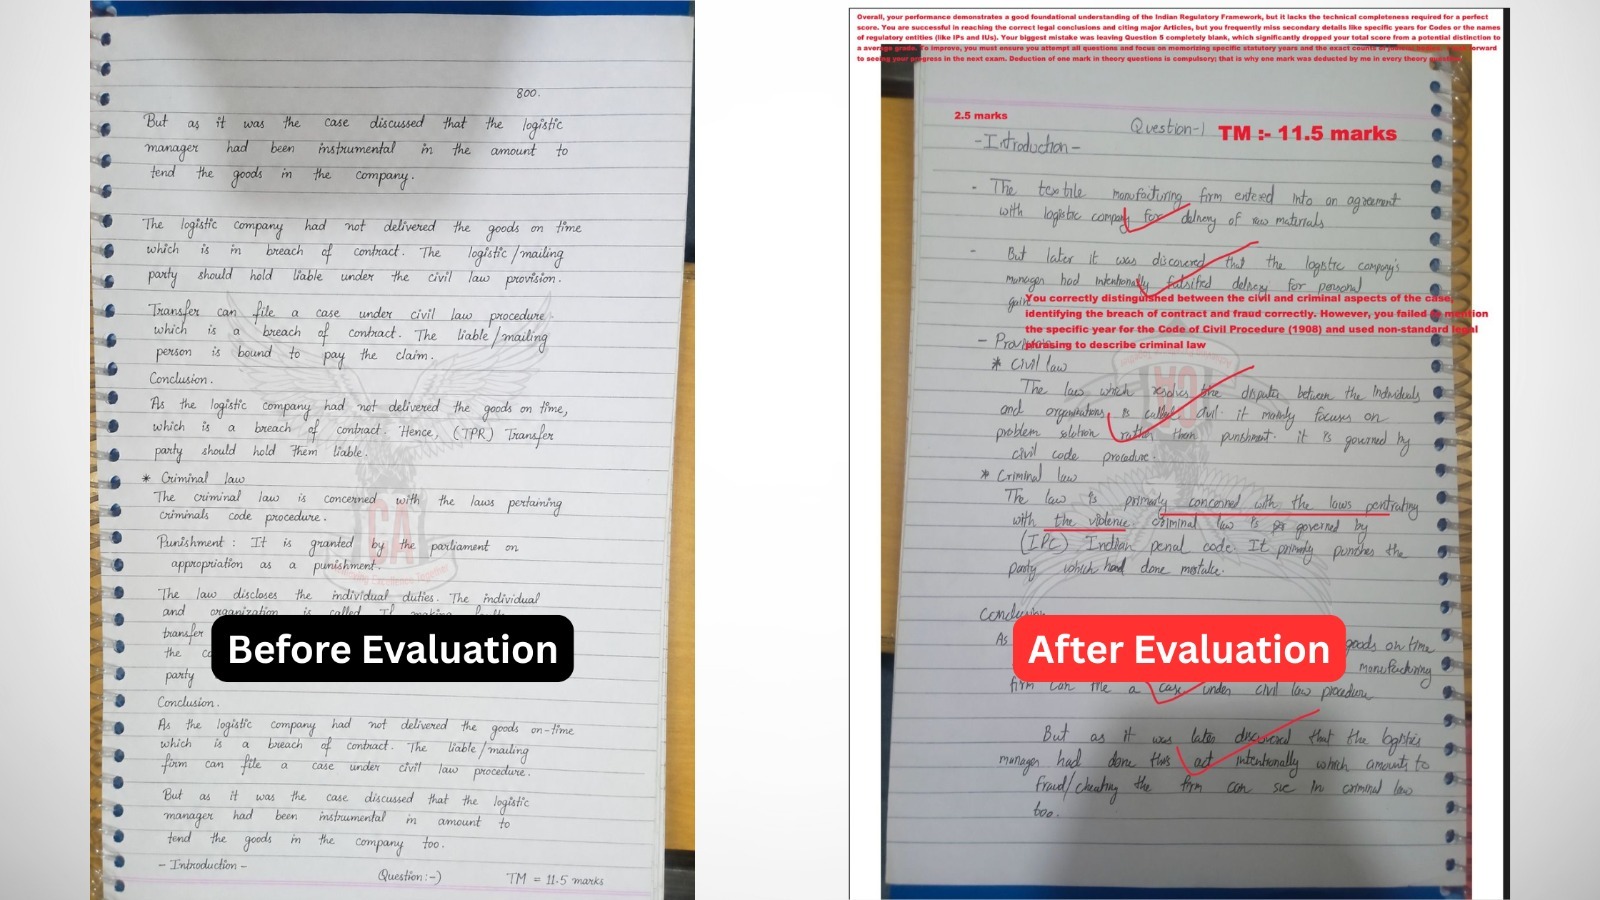 800.
But as it was the case discussed that the logistic
manager had been instrumental in the amount to
tend the goods in the company.
The logistic company had not delivered the goods on time
which is in breach of contract. The logistic/mailing
party should hold liable under the civil law provision.
Transfer can file a case under civil law procedure.
which is a breach of contract. The liable/mailing
person is bound to pay the claim.
Conclusion.
As the logistic company had not delivered the goods on time,
which is a breach of contract. Hence, (TPR) Transfer
party should hold them liable.
* Criminal law
The criminal law is concerned with the laws pertaining
criminals code procedure.
Punishment : It is granted by the parliament on
appropriation as a punishment.
CA
The law discloses the individual duties. The individual
and organization is called
transfer
the
party
Before Evaluation
Conclusion.
As the logistic company had not delivered the goods on-time
which is a breach of contract. The liable/mailing
form can file a case under civil law procedure.
But as it was the case discussed that the logistic
manager had been instrumental in amount to
tend the goods in the company too.
- Introduction -
Question:-) TM = 11.5 marks
Overall, your performance demonstrates a good foundational understanding of the Indian Regulatory Framework, but it lacks the technical completeness required for a perfect
score. You are successful in reaching the correct legal conclusions and citing major Articles, but you frequently miss secondary details like specific years for Codes or the names
of regulatory entities (like IPs and IUs). Your biggest mistake was leaving Question 5 completely blank, which significantly dropped your total score from a potential distinction to
a average grade. To improve, you must ensure you attempt all questions and focus on memorizing specific statutory years and the exact counts of
to seeing your progress in the next exam. Deduction of one mark in theory questions is compulsory; that is why one mark was deducted by me in every theory
2.5 marks
Question-1 TM :- 11.5 marks
- Introduction -
- The textile manufacturing firm entered into an agreement
with logistic company for delivery of raw materials
- But later it was discovered that the logistic company's
manager had intentionally falsified delivery for personal
gain
You correctly distinguished between the civil and criminal aspects of the case,
identifying the breach of contract and fraud correctly. However, you failed to mention
the specific year for the Code of Civil Procedure (1908) and used non-standard legal
phrasing to describe criminal law
* Civil law
The law which resolves the disputes between the individuals
and organisations is called civil. it mainly focuses on
problem solution rather than punishment. it is governed by
civil code procedure.
* Criminal law
The law is primarily concerned with the laws pentrating
with the violence. Criminal law is governed by
(IPC) Indian penal code. It primarly punches the
party which had done mistake.
Conclusion
As goods on time
After Evaluation
manufacturing
firm can file a case under civil law procedure
But as it was later discovered that the logistics
manager had done this act intentionally which amounts to
fraud/cheating the firm can sue in criminal law
too.